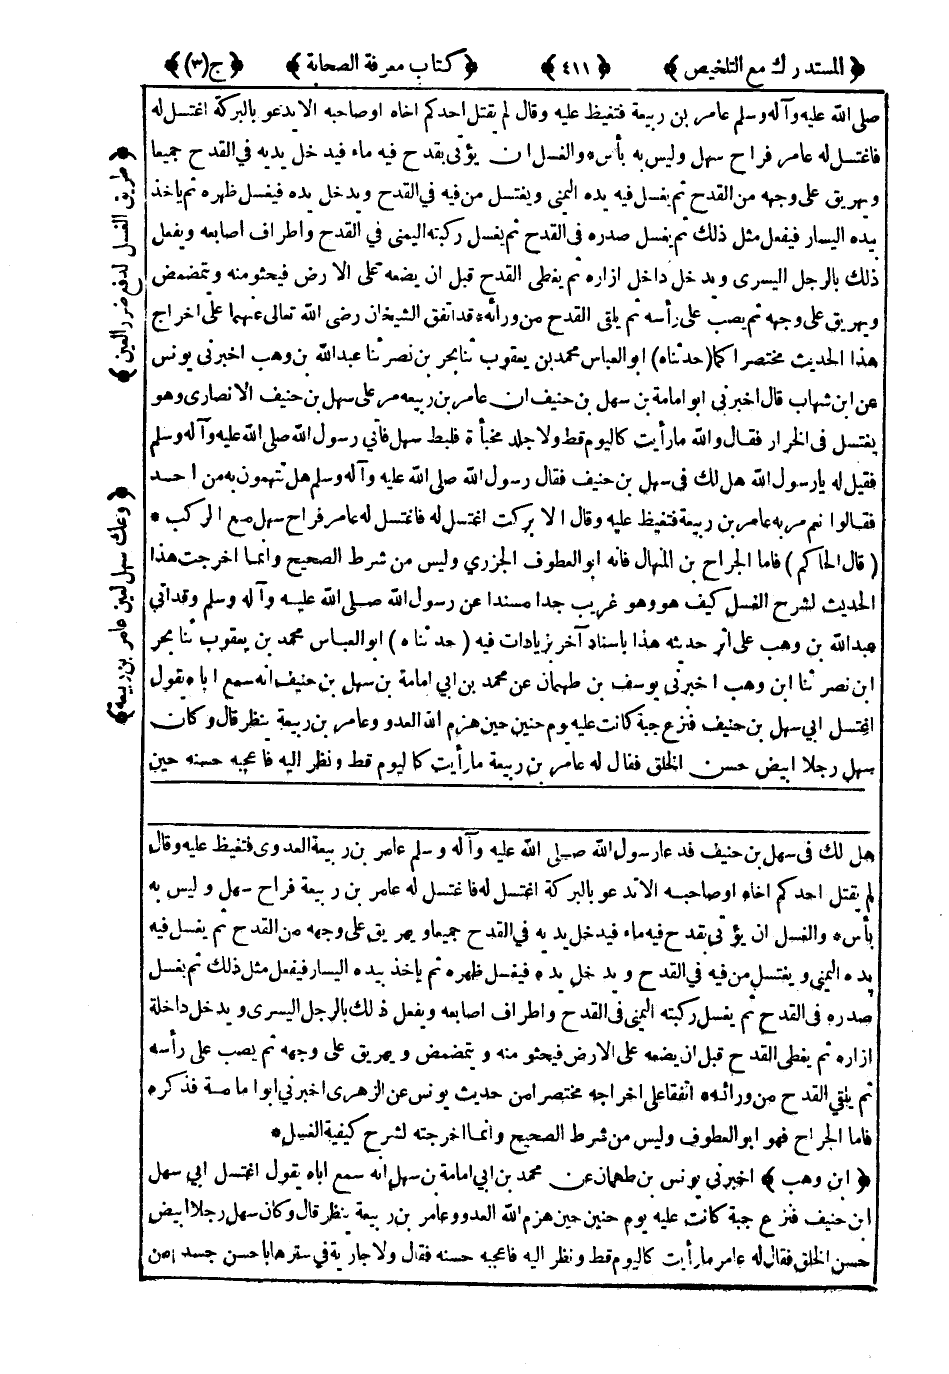 ﴿المستدرك مع التلخيص﴾ ﴿٤١١﴾ ﴿كتاب معرفة الصحابة﴾ ﴿ج(٣)﴾
صلى الله عليه وآله وسلم عامر بن ربيعة فتغيظ عليه وقال لم يقتل احدكم اخاه او صاحبه الا يدعو بالبركة اغتسل له
فاغتسل له عامر فراح سهل وليس به بأس * والغسل ان يؤتى بقدح فيه ماء فيدخل يديه في القدح جميعا
ويهريق على وجهه من القدح ثم يغسل فيه يده اليمنى ويغتسل من فيه في القدح ويدخل يده فيغسل ظهره ثم يأخذ
بيده اليسار فيفعل مثل ذلك ثم يغسل صدره فى القدح ثم يغسل ركبته اليمنى في القدح واطراف اصابعه ويفعل
ذلك بالرجل اليسرى ويدخل داخل ازاره ثم يغطى القدح قبل ان يضعه على الارض فيحثو منه ويتمضمض
ويهريق على وجهه ثم يصب على رأسه ثم يلقى القدح من ورائه * قد اتفق الشيخان رضى الله تعالى عنهما على اخراج
هذا الحديث مختصرا كما (حدثناه) ابو العباس محمد بن يعقوب ثنا بحر بن نصر ثنا عبد الله بن وهب اخبرنى يونس
عن ابن شهاب قال اخبرنى ابو امامة بن سهل بن حنيف ان عامر بن ربيعه مر على سهل بن حنيف الانصارى وهو
يغتسل فى الخرار فقال والله ما رأيت كاليوم قط ولا جلد مخبأة فلبط سهل فأتى رسول الله صلى الله عليه وآله وسلم
فقيل له يا رسول الله هل لك فى سهل بن حنيف فقال رسول الله صلى الله عليه وآله وسلم هل تتهمون به من احد
فقالوا نعم مر به عامر بن ربيعة فتغيظ عليه وقال الا بركت اغتسل له فاغتسل له عامر فراح سهل مع الركب *
(قال الحاكم) فاما الجراح بن المنهال فانه ابو العطوف الجزري وليس من شرط الصحيح وانما اخرجت هذا
الحديث لشرح الغسل كيف هو وهو غريب جدا مسندا عن رسول الله صلى الله عليه وآله وسلم وقد اتى
عبد الله بن وهب على اثر حديثه هذا باسناد آخر بزيادات فيه (حدثناه) ابو العباس محمد بن يعقوب ثنا بحر
ابن نصر ثنا ابن وهب اخبرنى يوسف بن طهمان عن محمد بن ابي امامة بن سهل بن حنيف انه سمع اباه يقول
اغتسل ابي سهل بن حنيف فنزع جبة كانت عليه يوم حنين حين هزم الله العدو وعامر بن ربيعة ينظر قال وكان
سهل رجلا ابيض حسن الخلق فقال له عامر بن ربيعة ما رأيت كاليوم قط ونظر اليه فاعجبه حسنه حين
هل لك فى سهل بن حنيف فدعا رسول الله صلى الله عليه وآله وسلم عامر بن ربيعة العدوى فتغيظ عليه وقال
لم يقتل احدكم اخاه او صاحبه الا تدعو بالبركة اغتسل له فاغتسل له عامر بن ربيعة فراح سهل وليس به
بأس * والغسل ان يؤتى بقدح فيه ماء فيدخل يديه في القدح جميعا ويهريق على وجهه من القدح ثم يغسل فيه
يده اليمنى ويغتسل من فيه في القدح ويدخل يده فيغسل ظهره ثم يأخذ بيده اليسار فيفعل مثل ذلك ثم يغسل
صدره فى القدح ثم يغسل ركبته اليمنى فى القدح واطراف اصابعه ويفعل ذلك بالرجل اليسرى ويدخل داخلة
ازاره ثم يغطى القدح قبل ان يضعه على الارض فيحثو منه ويتمضمض ويهريق على وجهه ثم يصب على رأسه
ثم يلقي القدح من ورائه * اتفقا على اخراجه مختصرا من حديث يونس عن الزهرى اخبرنى ابوا مامة فذكره
فاما الجراح فهو ابو العطوف وليس من شرط الصحيح وانما اخرجته لشرح كيفية الغسل *
﴿ابن وهب﴾ اخبرنى يونس بن طهمان عن محمد بن ابي امامة بن سهل انه سمع اباه يقول اغتسل ابي سهل
ابن حنيف فنزع جبة كانت عليه يوم حنين حين هزم الله العدو وعامر بن ربيعة ينظر قال وكان سهل رجلا ابيض
حسن الخلق فقال له عامر ما رأيت كاليوم قط ونظر اليه فاعجبه حسنه فقال ولا جارية في سترها باحسن جسد امن
﴿طريق الغسل لدفع ضرر العين﴾
﴿وعك سهل لعين عامر بن ربيعة﴾